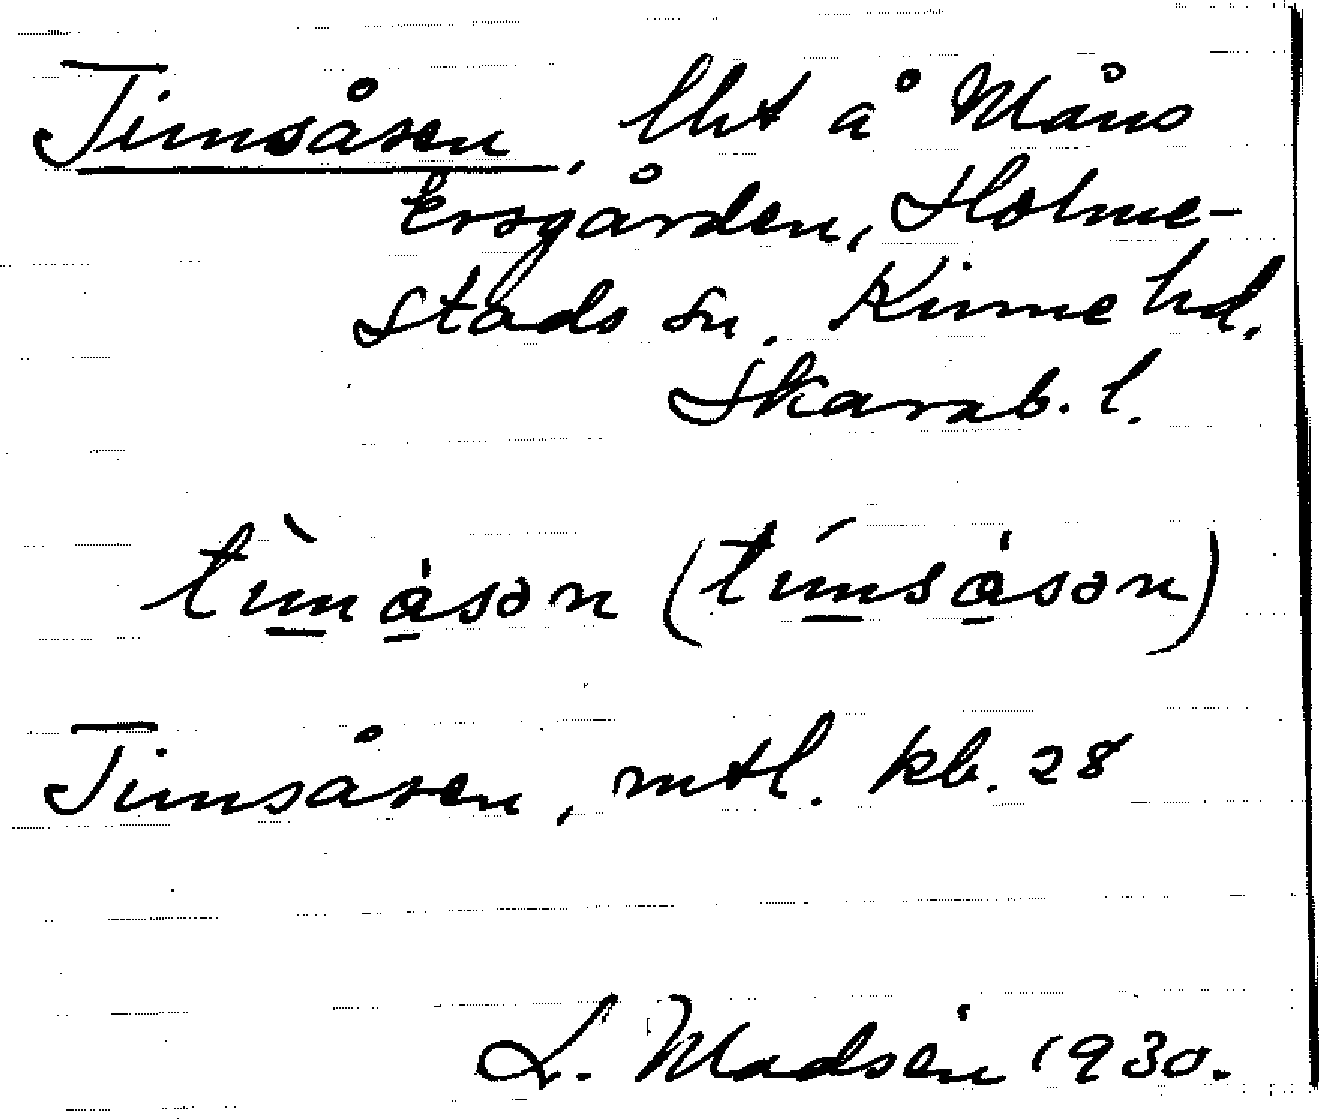 Timsåsen, lht å Måns
Ersgården, Holme-
stads sn. Kinne hd.
Skarab. l.
tìmåsən (tímsåsən)
Timsåsen, mtl. kb. 28
L. Madsén 1930.